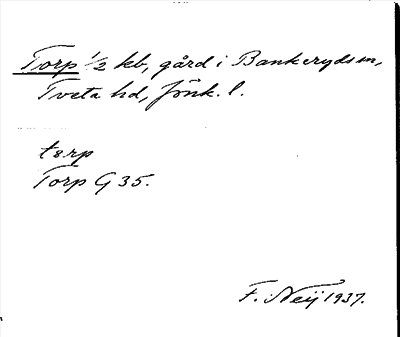 Torp 1/2 kb, gård i Bankeryds sn,
Tveta hd, Jönk. l.
tɷrp
Torp G 35.
F. Neij 1937.